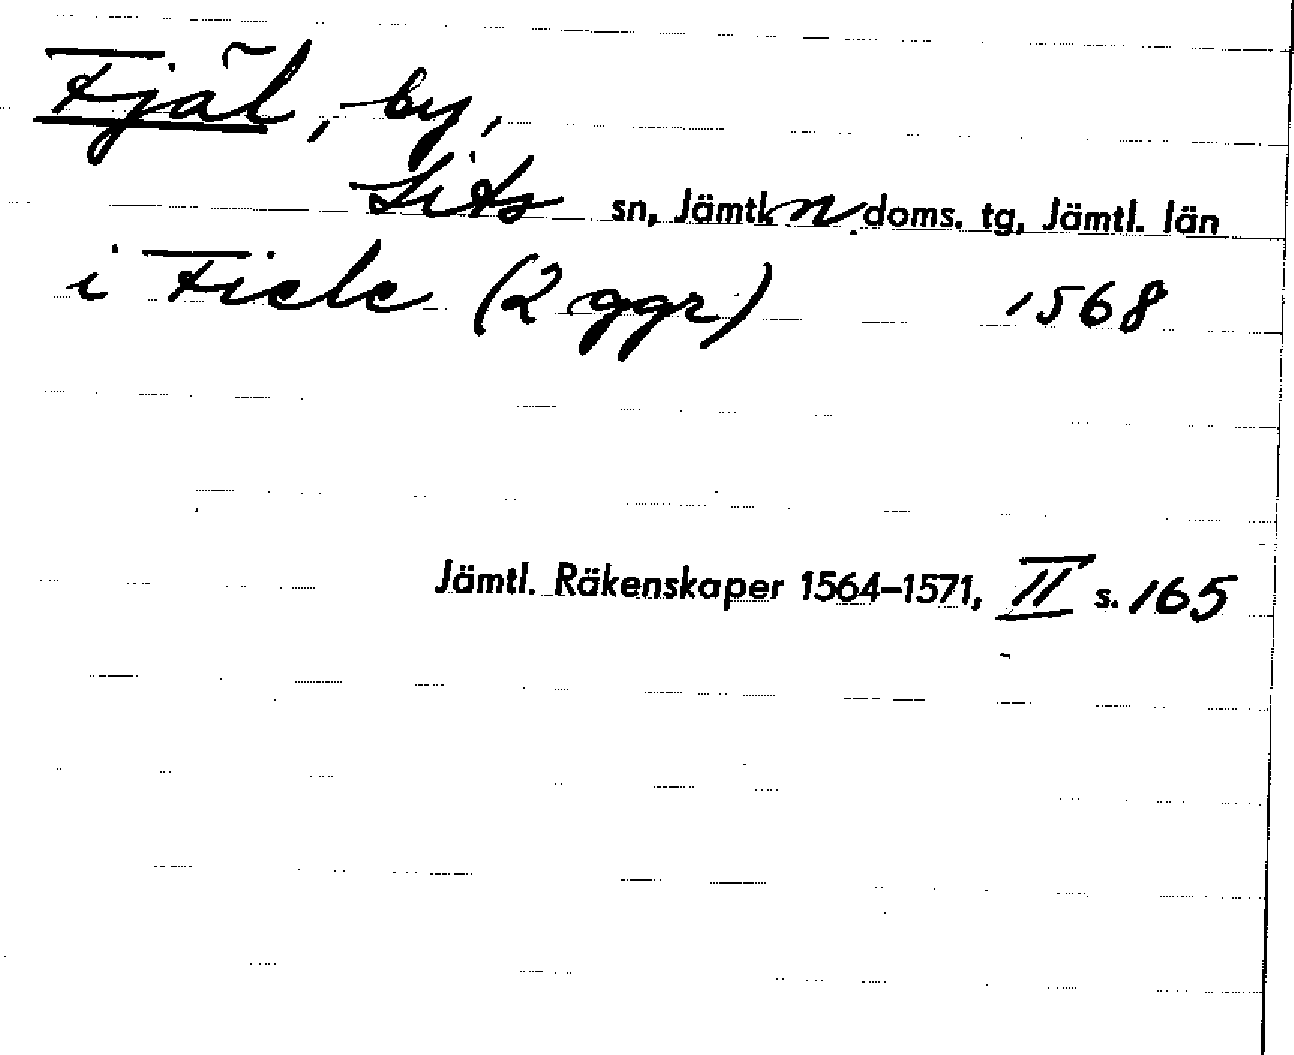 Fjäl, by,
Lits sn, Jämtl. n. doms. tg, Jämtl. län
i Fiele (2 ggr) 1568
Jämtl. Räkenskaper 1564–1571, II s. 165